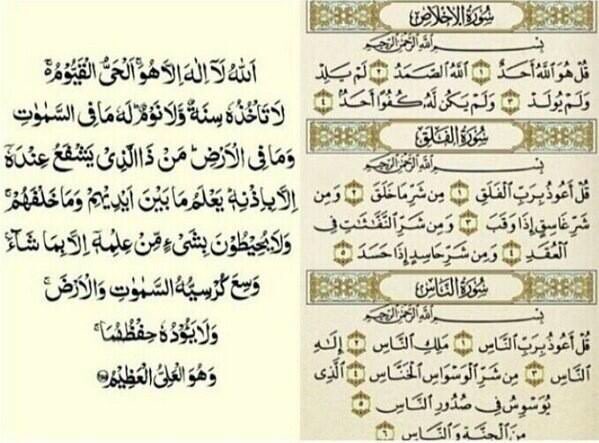 اَللّٰهُ لَآ اِلٰهَ اِلَّا هُوَ ۚ اَلْحَیُّ الْقَیُّوْمُ ۚ۬
لَا تَاْخُذُهٗ سِنَةٌ وَّلَا نَوْمٌ ؕ لَهٗ مَا فِی السَّمٰوٰتِ
وَمَا فِی الْاَرْضِ ؕ مَنْ ذَا الَّذِیْ یَشْفَعُ عِنْدَهٗۤ
اِلَّا بِاِذْنِهٖ ؕ یَعْلَمُ مَا بَیْنَ اَیْدِیْهِمْ وَمَا خَلْفَهُمْ ۚ
وَلَا یُحِیْطُوْنَ بِشَیْءٍ مِّنْ عِلْمِهٖۤ اِلَّا بِمَا شَآءَ ۚ
وَسِعَ كُرْسِیُّهُ السَّمٰوٰتِ وَالْاَرْضَ ۚ
وَلَا یَـُٔوْدُهٗ حِفْظُهُمَا ۚ
وَهُوَ الْعَلِیُّ الْعَظِیْمُ
سُورَةُ الْإِخْلَاصِ
بِسْمِ اللَّهِ الرَّحْمَٰنِ الرَّحِيمِ
قُلْ هُوَ اللَّهُ أَحَدٌ ١ اللَّهُ الصَّمَدُ ٢ لَمْ يَلِدْ
وَلَمْ يُولَدْ ٣ وَلَمْ يَكُن لَّهُ كُفُوًا أَحَدٌ ٤
سُورَةُ الْفَلَقِ
بِسْمِ اللَّهِ الرَّحْمَٰنِ الرَّحِيمِ
قُلْ أَعُوذُ بِرَبِّ الْفَلَقِ ١ مِن شَرِّ مَا خَلَقَ ٢ وَمِن
شَرِّ غَاسِقٍ إِذَا وَقَبَ ٣ وَمِن شَرِّ النَّفَّاثَاتِ فِي
الْعُقَدِ ٤ وَمِن شَرِّ حَاسِدٍ إِذَا حَسَدَ ٥
سُورَةُ النَّاسِ
بِسْمِ اللَّهِ الرَّحْمَٰنِ الرَّحِيمِ
قُلْ أَعُوذُ بِرَبِّ النَّاسِ ١ مَلِكِ النَّاسِ ٢ إِلَٰهِ
النَّاسِ ٣ مِن شَرِّ الْوَسْوَاسِ الْخَنَّاسِ ٤ الَّذِي
يُوَسْوِسُ فِي صُدُورِ النَّاسِ ٥
مِنَ الْجِنَّةِ وَالنَّاسِ ٦